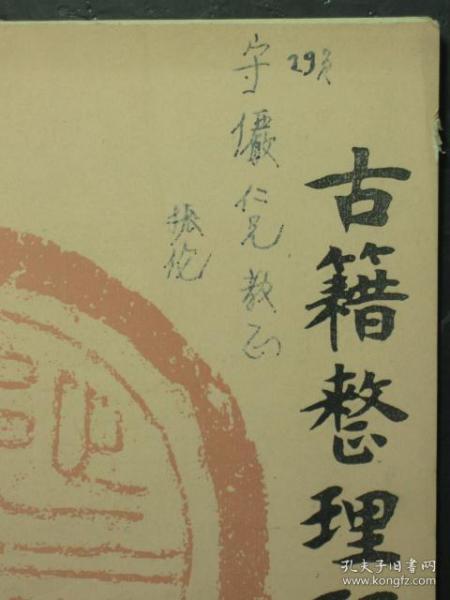 29页
守俨仁兄教正
振伦
古籍整理
孔夫子旧书网
www.kongfz.com